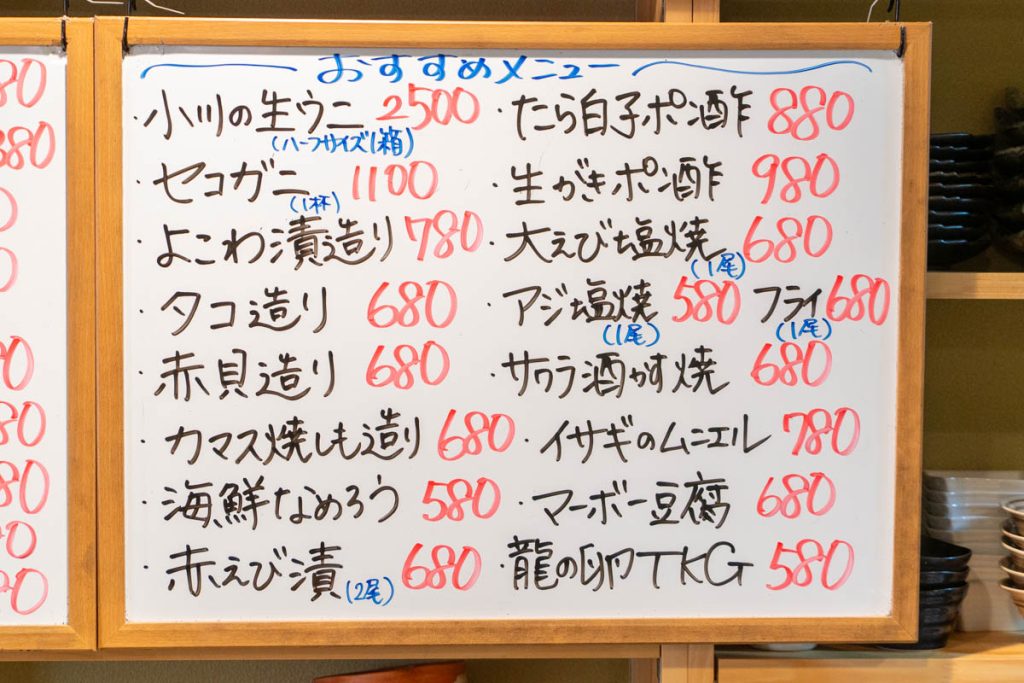 おすすめメニュー
・小川の生ウニ 2500
(ハーフサイズ1箱)
・セコガニ 1100
(1杯)
・よこわ漬造り 780
・タコ造り 680
・赤貝造り 680
・カマス焼しも造り 680
・海鮮なめろう 580
・赤えび漬(2尾) 680
・たら白子ポン酢 880
・生がきポン酢 980
・大えび塩焼 680
(1尾)
・アジ塩焼 580 フライ 680
(1尾) (1尾)
・サワラ酒かす焼 680
・イサギのムニエル 780
・マーボー豆腐 680
・龍の卵TKG 580
80
680
80
80
80
80